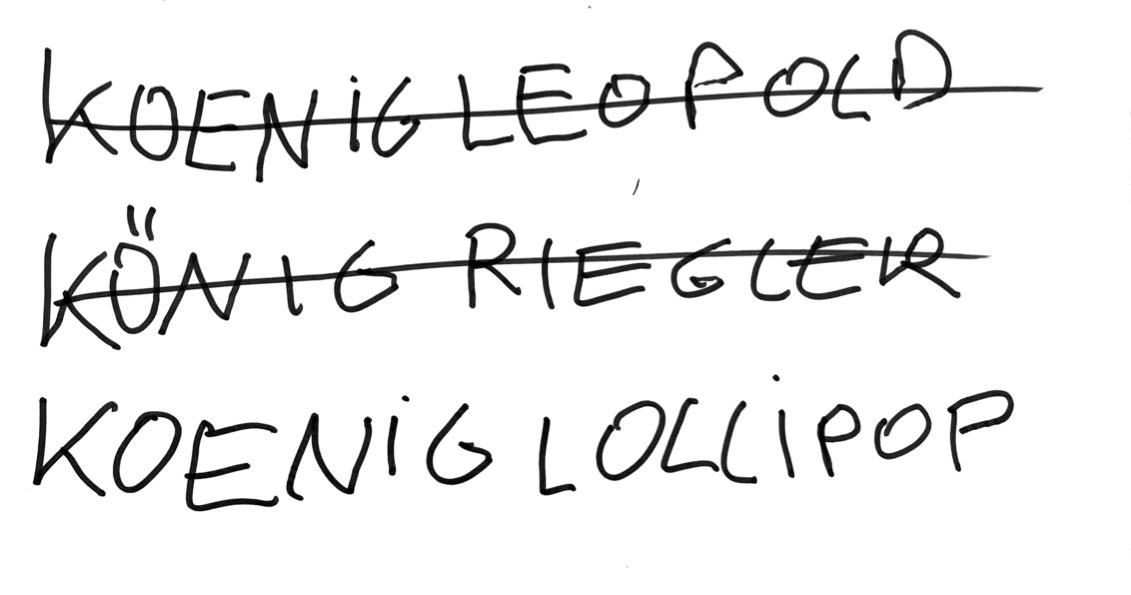 KOENIG LEOPOLD
KÖNIG RIEGLER
KOENIG LOLLiPOP